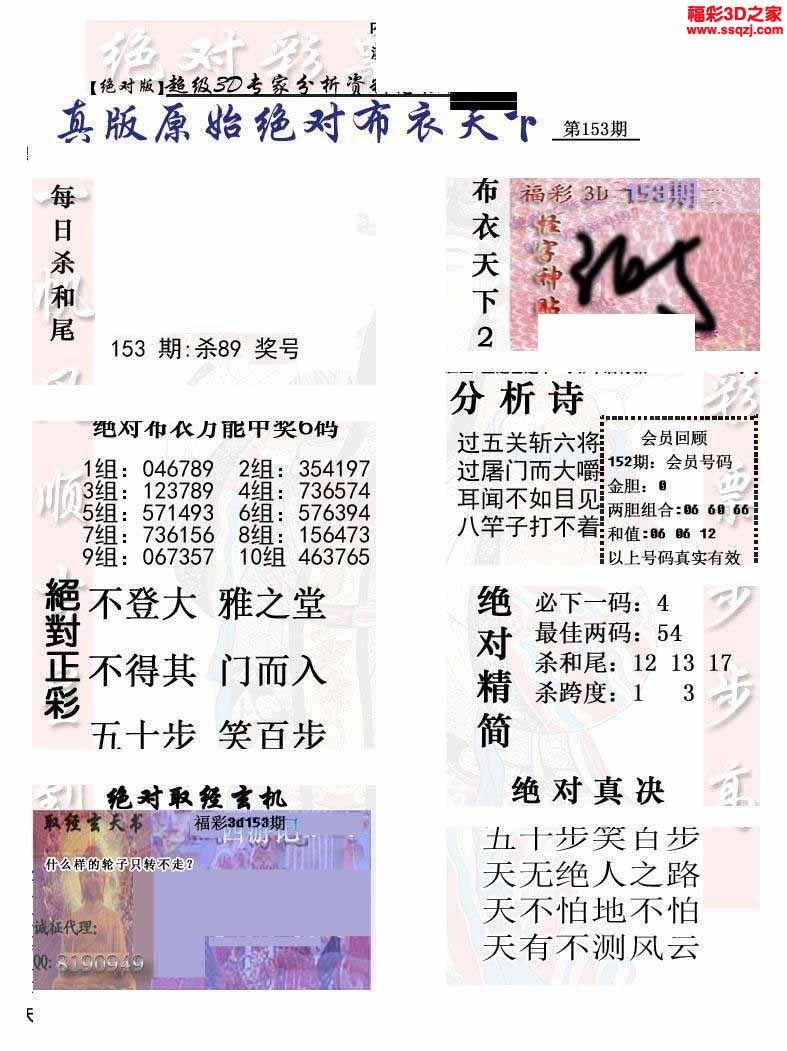 福彩3D之家
www.ssqzj.com
绝对彩
【绝对版】超级3D专家分析资料
真版原始绝对布衣天下
第153期
每日杀和尾
153 期:杀89 奖号
布衣天下2
福彩 3D 153期
怪字神贴
绝对布衣万能中奖6码
1组: 046789 2组: 354197
3组: 123789 4组: 736574
5组: 571493 6组: 576394
7组: 736156 8组: 156473
9组: 067357 10组 463765
分析诗
过五关斩六将
过屠门而大嚼
耳闻不如目见
八竿子打不着
会员回顾
152期: 会员号码
金胆: 0
两胆组合:06 60 66
和值:06 06 12
以上号码真实有效
絕對正彩
不登大 雅之堂
不得其 门而入
五十步 笑百步
绝对精简
必下一码: 4
最佳两码: 54
杀和尾: 12 13 17
杀跨度: 1 3
绝对取经玄机
取经玄天书
福彩3d153期
西游记
什么样的轮子只转不走?
诚征代理:
QQ: 8190949
绝对真决
五十步笑百步
天无绝人之路
天不怕地不怕
天有不测风云